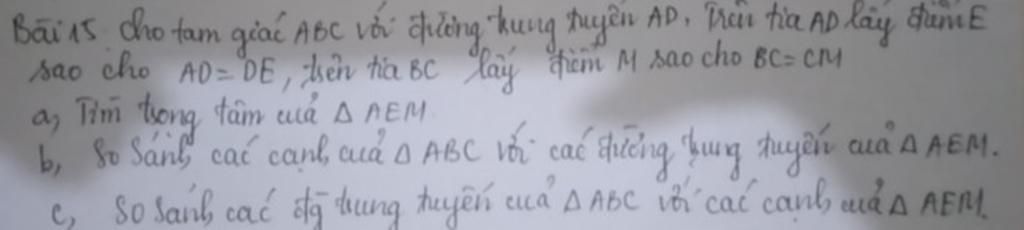 Bài 15 Cho tam giác ABC với đường trung tuyến AD, Trên tia AD lấy điểm E
sao cho AD = DE, trên tia BC lấy điểm M sao cho BC = CM
a, Tìm trọng tâm của Δ AEM
b, So Sánh các cạnh của Δ ABC với các đường trung tuyến của Δ AEM.
c, So sánh các đg trung tuyến của Δ ABC với các cạnh của Δ AEM.